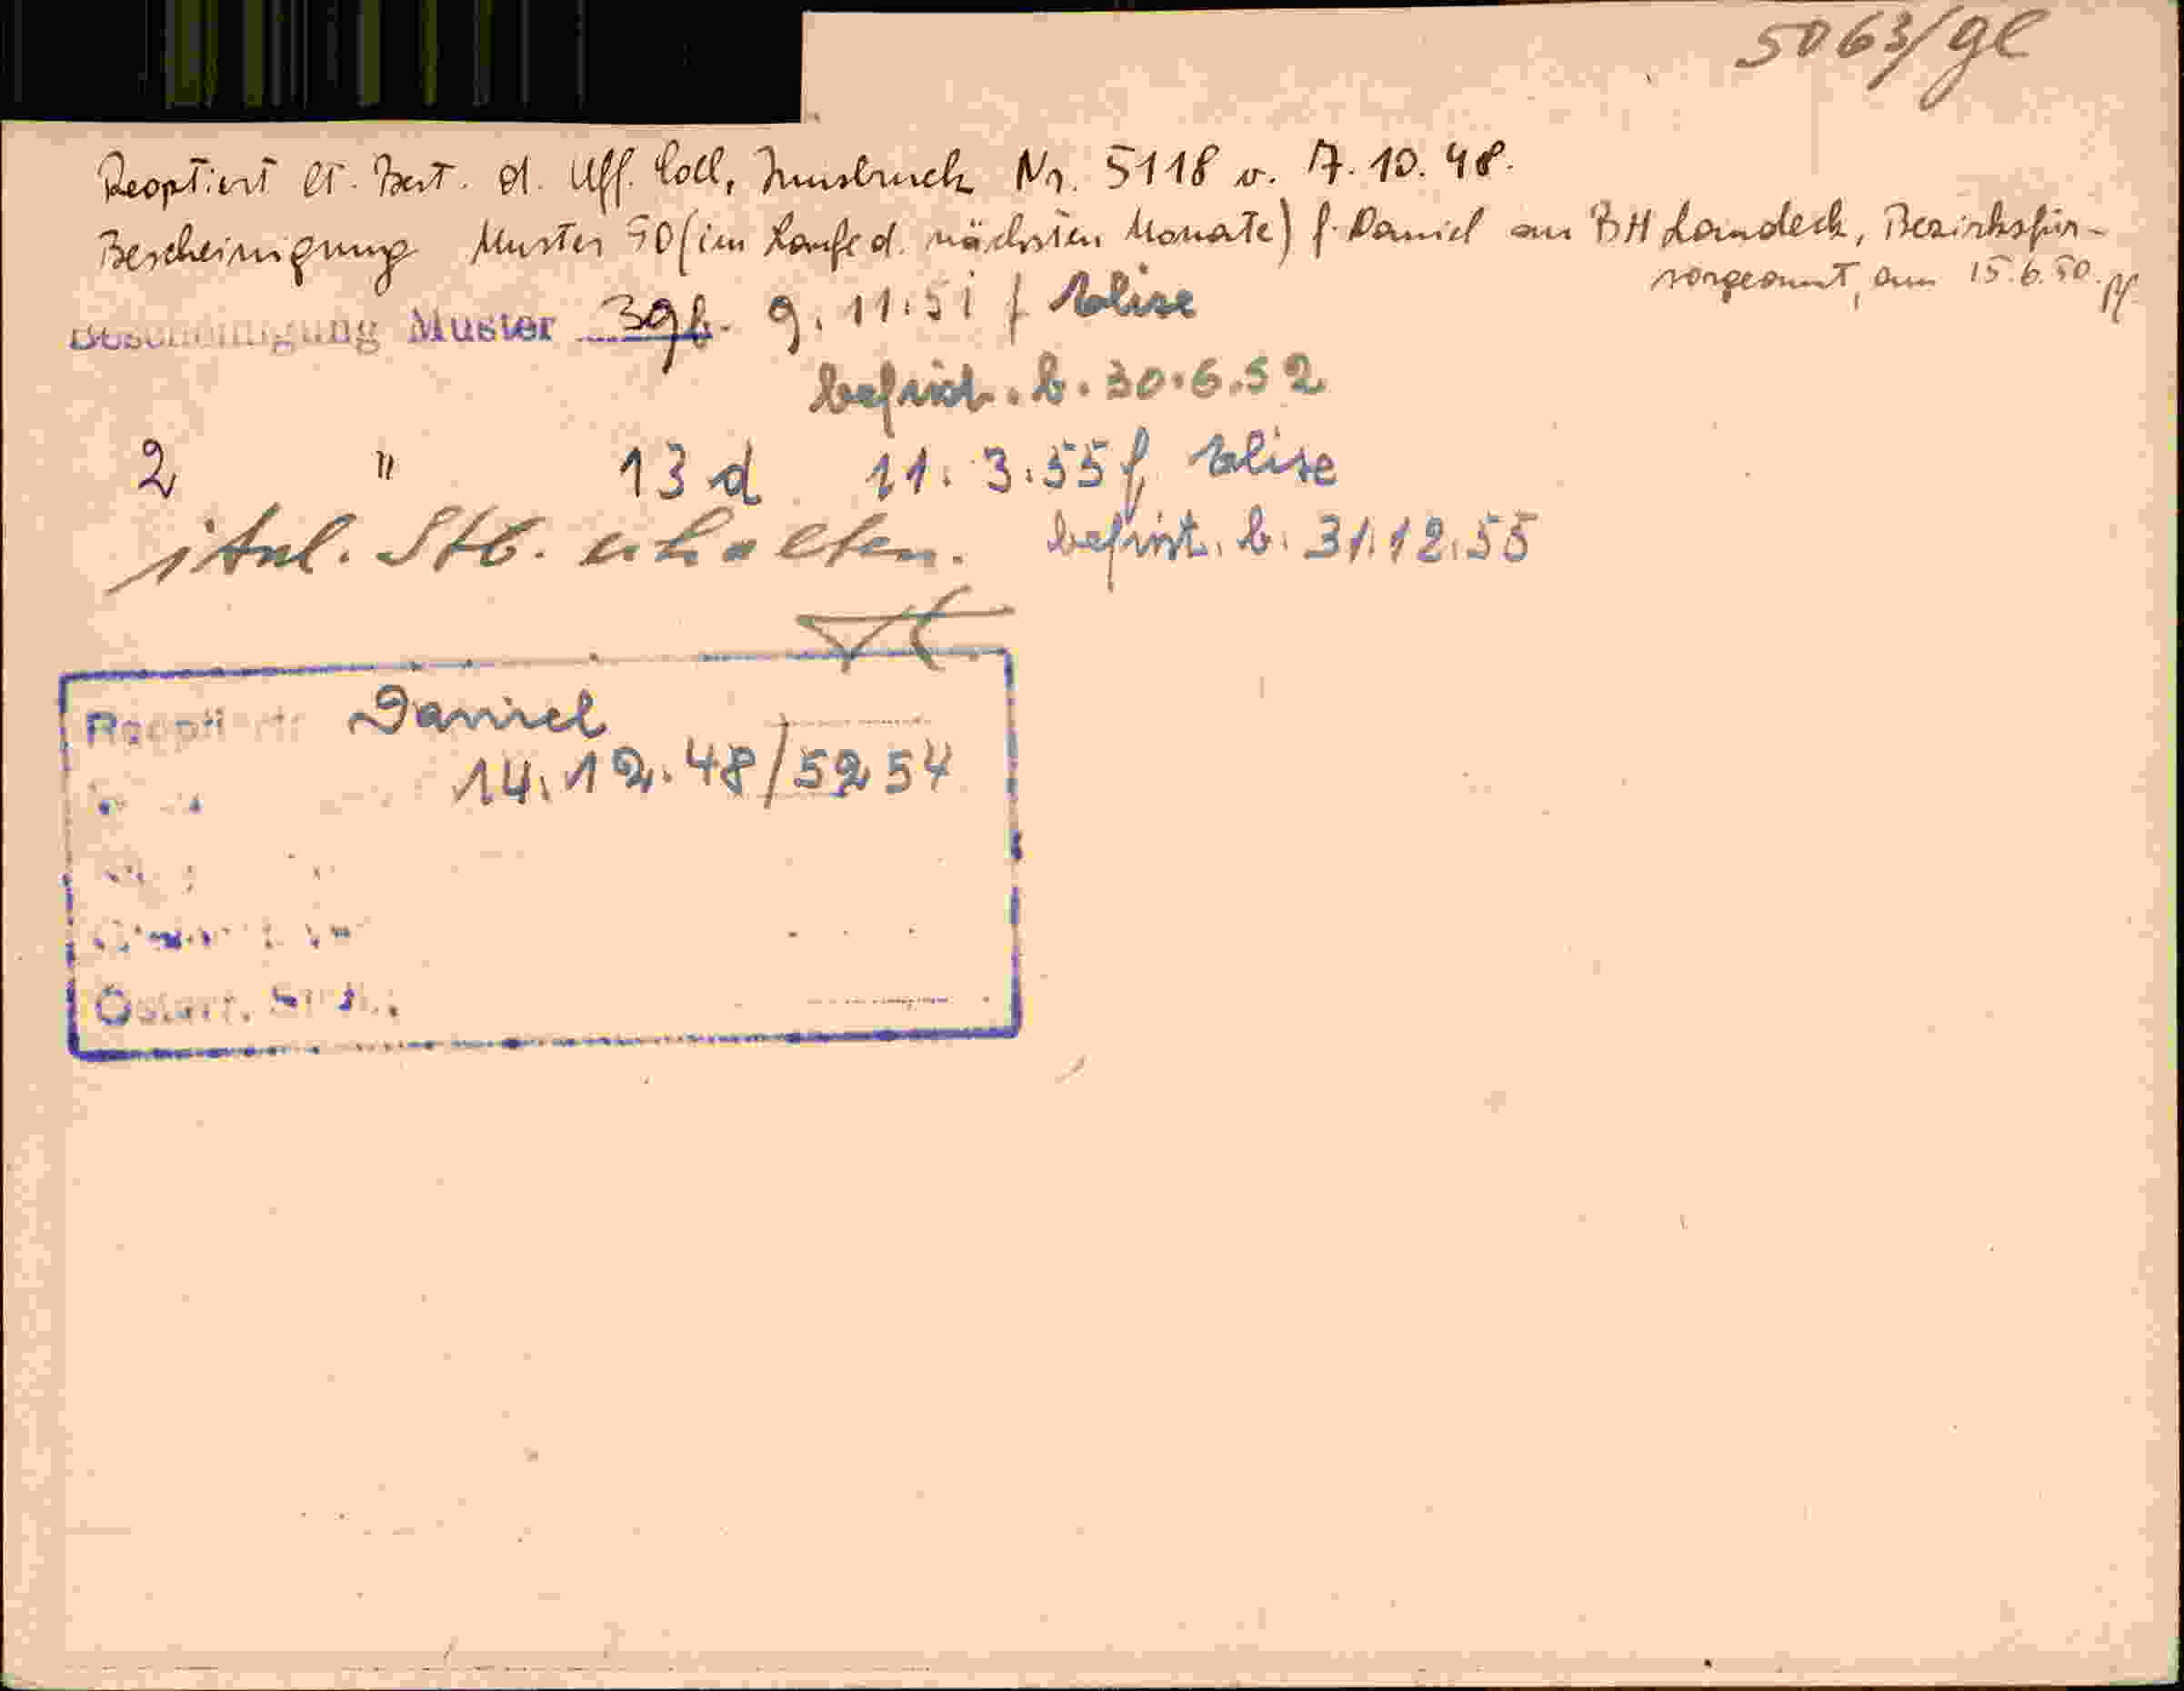 5063/gl
Reoptiert lt. Best. d. Uff. Coll, Innsbruck Nr. 5118 v. 7.10.48.
Bescheinigung Muster 50 (im Laufe d. nächsten Monate) f. Daniel an BH Landeck, Bezirksfür-
sorgeamt, am 15.6.50.
Bescheinigung Muster 39b. 9.11.51 f Elise
befrist. b. 30.6.52
2 " 13 d 11.3.55 f Elise
ital. Stb. erhalten. befrist. b. 31.12.55
Reoptiert: Daniel
14.12.48/5254
Österr.